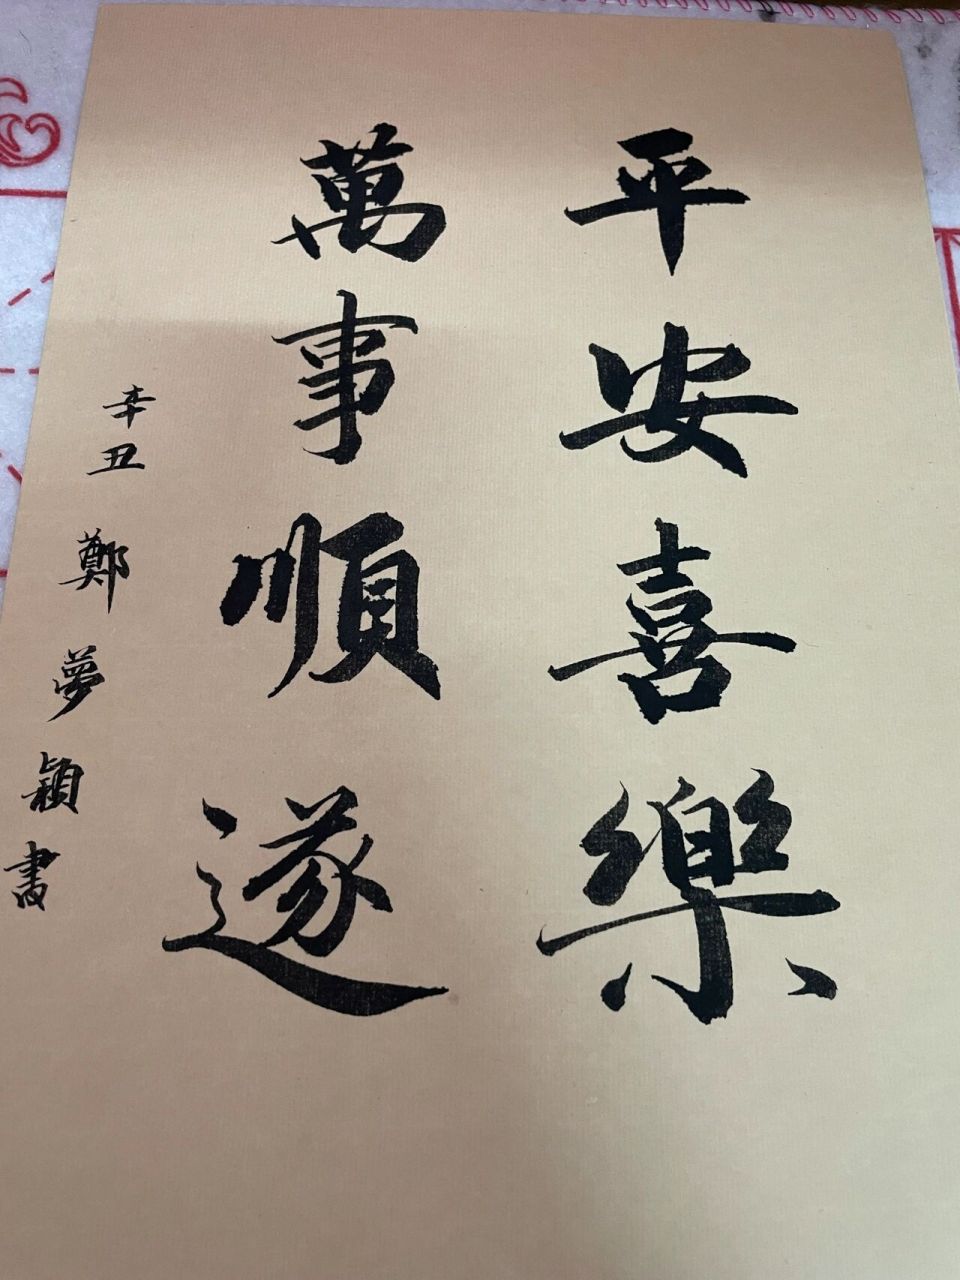 平安喜樂
萬事順遂
辛丑 鄭夢穎書